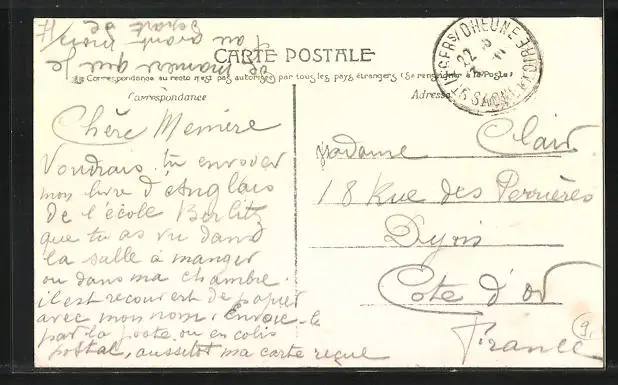 CARTE POSTALE
La Correspondance au recto n'est pas autorisée par tous les pays étrangers (Se renseigner à la Poste)
Correspondance
Adresse
ST LEGER S/ DHEUNE
SAONE ET LOIRE
22
Chère Memère
Voudrais tu envoyer
mon livre d'Anglais
De l'école Berlitz
que tu as vu dans
la salle à manger
ou dans ma chambre.
il est recouvert de papier
avec mon nom, Envoie-le
par la poste ou en colis
postal, aussitot ma carte reçue
de manière que je
avant mon
départ de
Madame Clair
18 Rue des Perrières
Dijon
Côte d'Or
France
9.